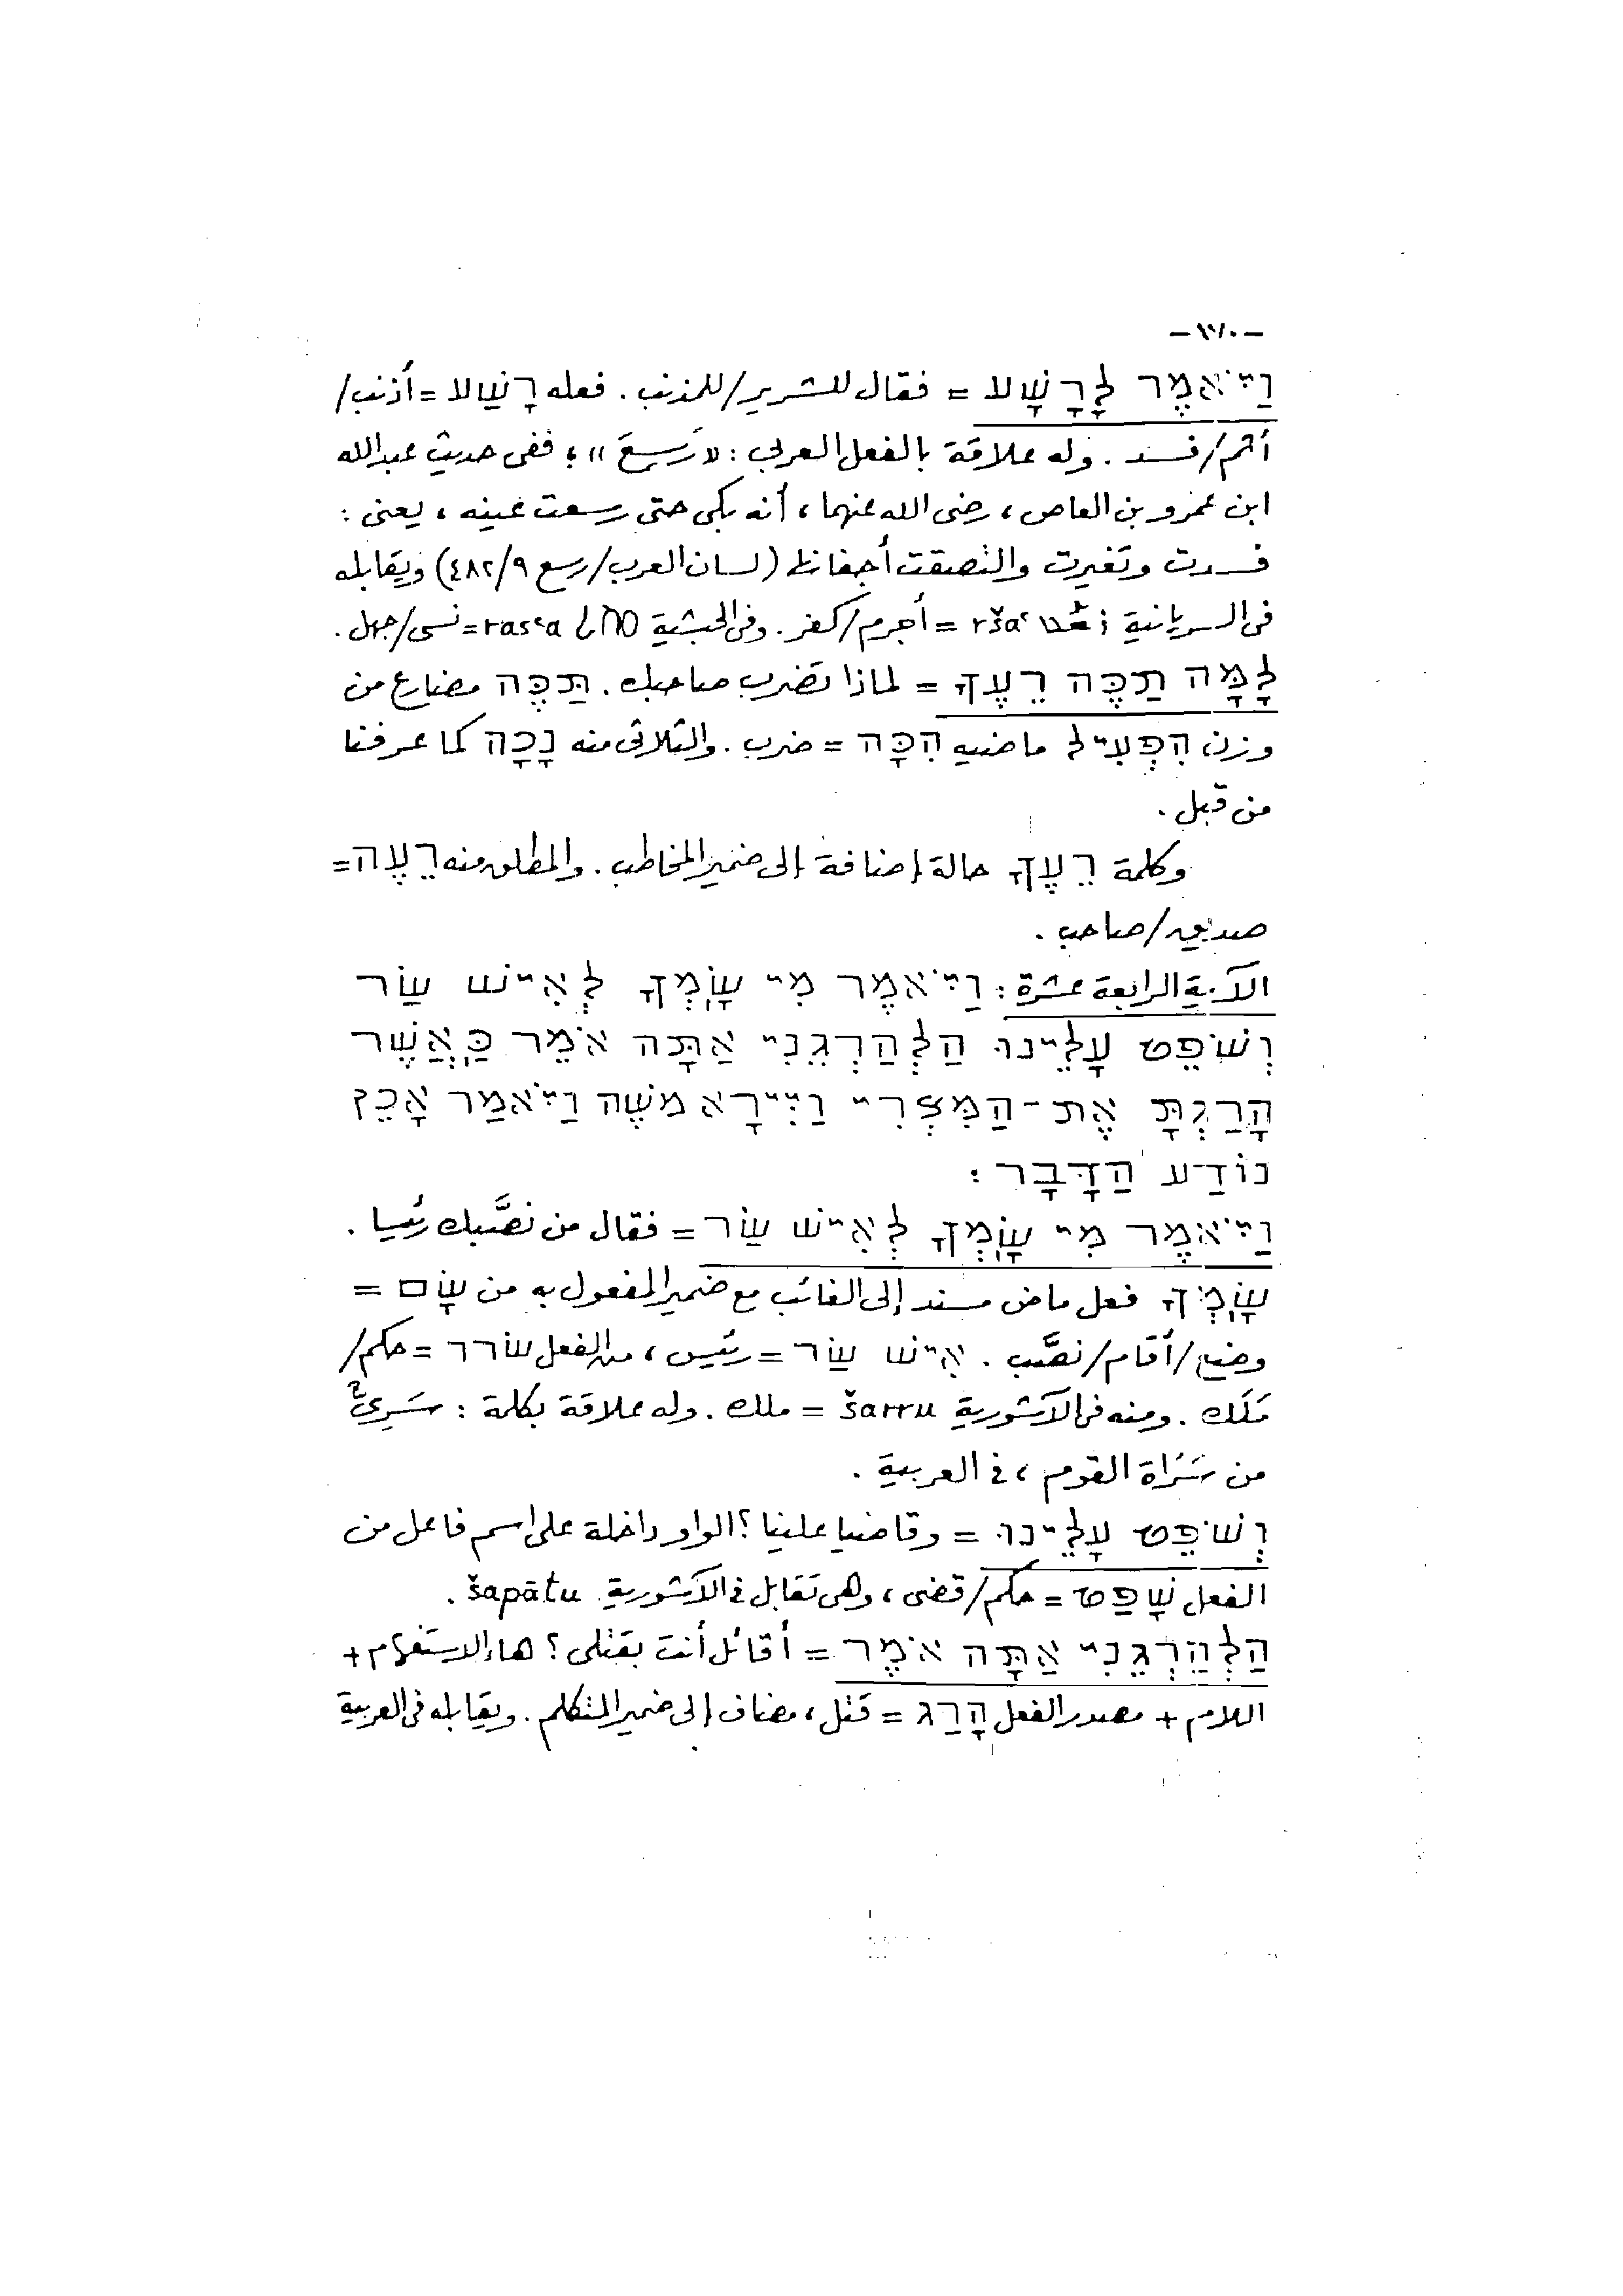 وَيֹּאמֶר לָרָשָׁע = فقال للشرير/للمذنب. فعله רָשַׁע = أذنب/
أثم/فسد. وله علاقة بالفعل العربى: «رَسِعَ»؛ ففى حديث عبدالله
ابن عمرو بن العاص، رضى الله عنهما، أنه بكى حتى رسعت عينه، يعنى:
فسدت وتغيرت والتصقت أجفانها (لسان العرب/رسع ٤٨٢/٩) ويقابله
فى السريانية ršaʿ = أجرم/كفر. وفى الحبشية rasʿa = نسى/جهل.
לָמָּה תַכֶּה רֵעֶךָ = لماذا تضرب صاحبك. תַּכֶּה مضارع من
وزن הִפְעִיל ماضيه הִכָּה = ضرب. والثلاثى منه נָכָה كما عرفنا
من قبل.
وكلمة רֵעֶךָ حالة إضافة إلى ضمير المخاطب. والمطلق منه רֵעֶה =
صديق/صاحب.
الآية الرابعة عشرة: וַיֹּאמֶר מִי שָׂמְךָ לְאִישׁ שַׂר
וְשֹׁפֵט עָלֵינוּ הַלְהַרְגֵנִי אַתָּה אֹמֵר כַּאֲשֶׁר
הָרַגְתָּ אֶת-הַמִּצְרִי וַיִּירָא מֹשֶׁה וַיֹּאמַר אָכֵן
נוֹדַע הַדָּבָר:
וַיֹּאמֶר מִי שָׂמְךָ לְאִישׁ שַׂר = فقال من نصَّبك رئيسا.
שָׂמְךָ فعل ماض مسند إلى الغائب مع ضمير المفعول به من שָׂם =
وضع/أقام/نصَّب. אִישׁ שַׂר = رئيس، من الفعل שׂרר = حكم/
مَلَك. ومنه فى الآشورية šarru = ملك. وله علاقة بكلمة: سَرِىٌّ
من سَرَاة القوم، فى العربية.
וְשֹׁפֵט עָלֵינוּ = وقاضيا علينا؟ الواو داخلة على اسم فاعل من
الفعل שָׁפַט = حكم/قضى، وهى تقابل فى الآشورية šapātu.
הַלְהֵרְגֵנִי אַתָּה אֹמֶר = أقائل أنت بقتلى؟ هاء الاستفهام +
اللام + مصدر الفعل הָרַג = قتل، مضاف إلى ضمير المتكلم. ويقابله فى العربية